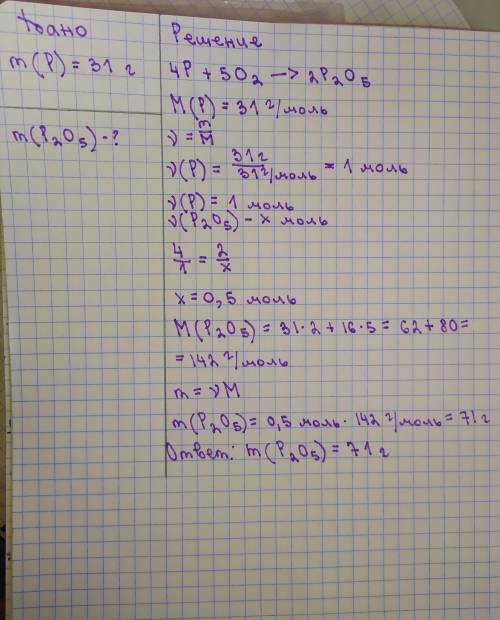 Дано
m(P) = 31 г
m(P₂O₅) - ?
Решение
4P + 5O₂ —> 2P₂O₅
M(P) = 31 г/моль
ν = m/M
ν(P) = 31 г / 31 г/моль = 1 моль
ν(P) = 1 моль
ν(P₂O₅) - x моль
4/1 = 2/x
x = 0,5 моль
M(P₂O₅) = 31·2 + 16·5 = 62 + 80 =
= 142 г/моль
m = νM
m(P₂O₅) = 0,5 моль · 142 г/моль = 71 г
Ответ: m(P₂O₅) = 71 г